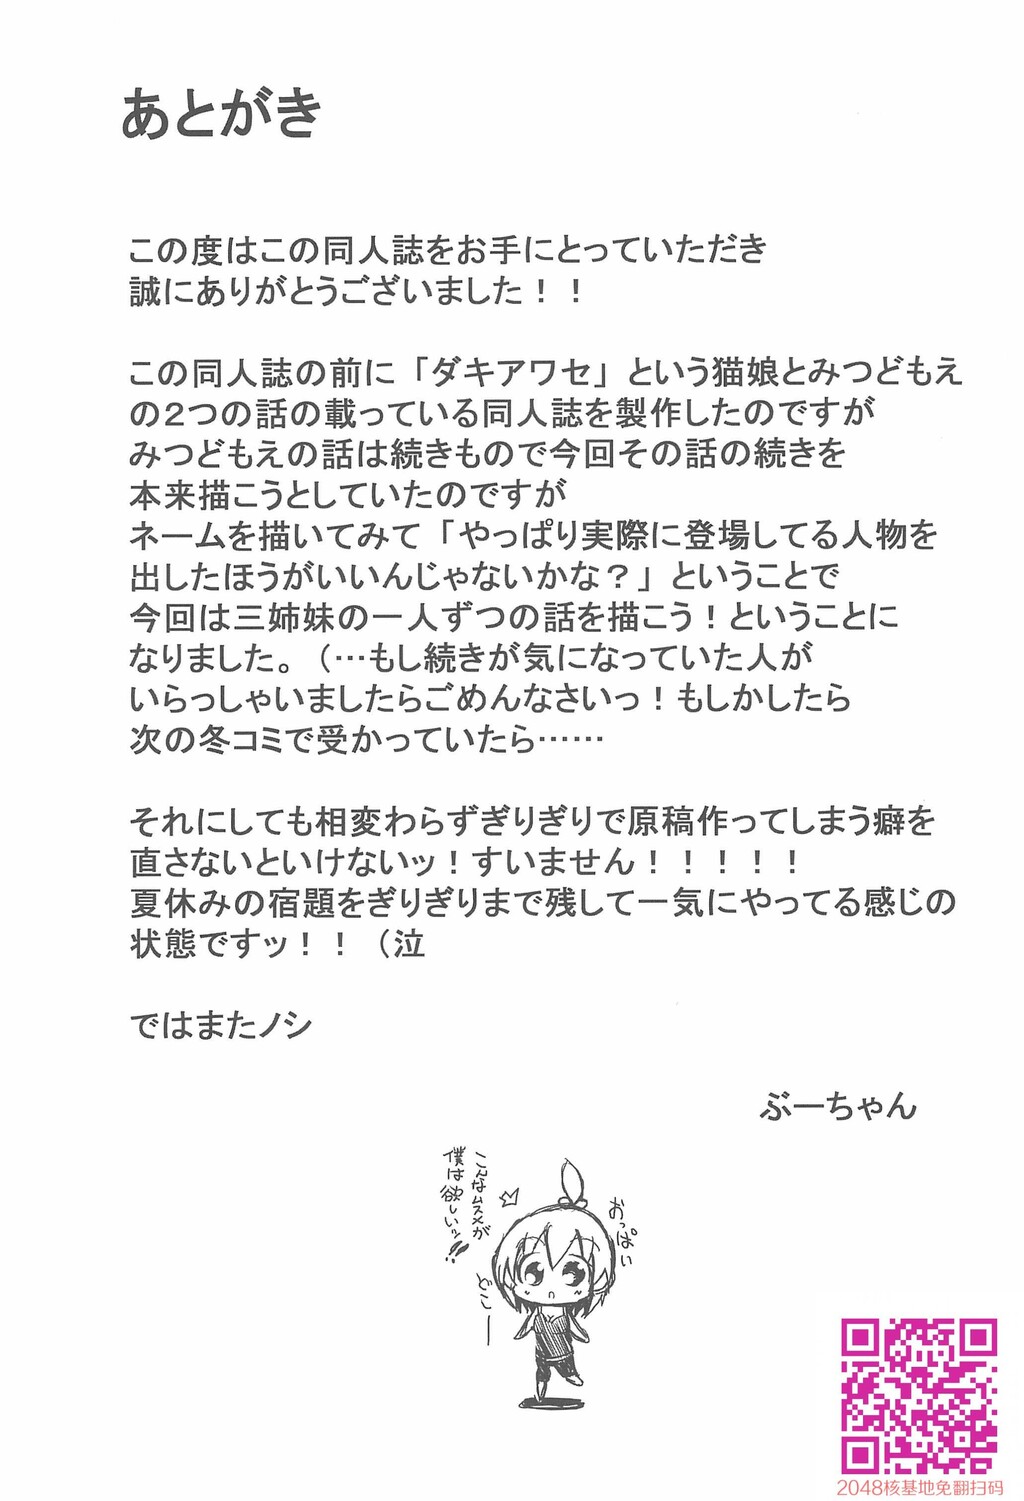 あとがき
この度はこの同人誌をお手にとっていただき
誠にありがとうございました！！
この同人誌の前に「ダキアワセ」という猫娘とみつどもえ
の２つの話の載っている同人誌を製作したのですが
みつどもえの話は続きもので今回その話の続きを
本来描こうとしていたのですが
ネームを描いてみて「やっぱり実際に登場してる人物を
出したほうがいいんじゃないかな？」ということで
今回は三姉妹の一人ずつの話を描こう！ということに
なりました。（…もし続きが気になっていた人が
いらっしゃいましたらごめんなさいっ！もしかしたら
次の冬コミで受かっていたら……
それにしても相変わらずぎりぎりで原稿作ってしまう癖を
直さないといけないッ！すいません！！！！！
夏休みの宿題をぎりぎりまで残して一気にやってる感じの
状態ですッ！！（泣
ではまたノシ
ぶーちゃん
こんなムスメが
僕は欲しいッ!!
おっぱい
どこー
2048核基地免翻扫码